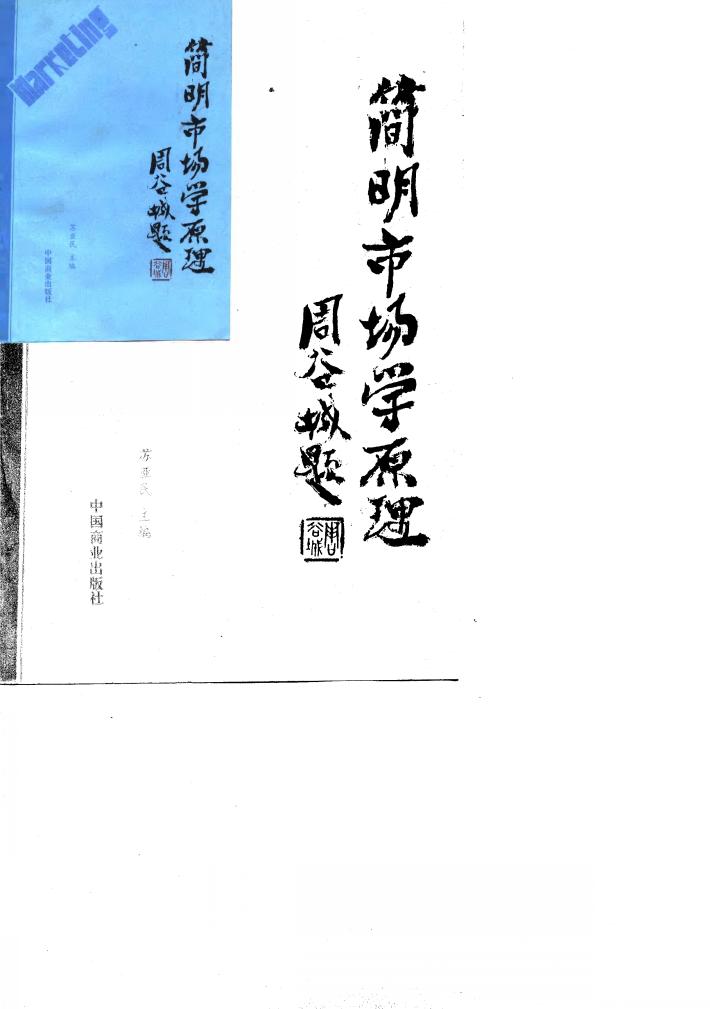 Marketing
简明市场学原理
周谷城题
周谷城
苏亚民 主编
中国商业出版社
简明市场学原理
周谷城题
周谷城
苏亚民 主编
中国商业出版社